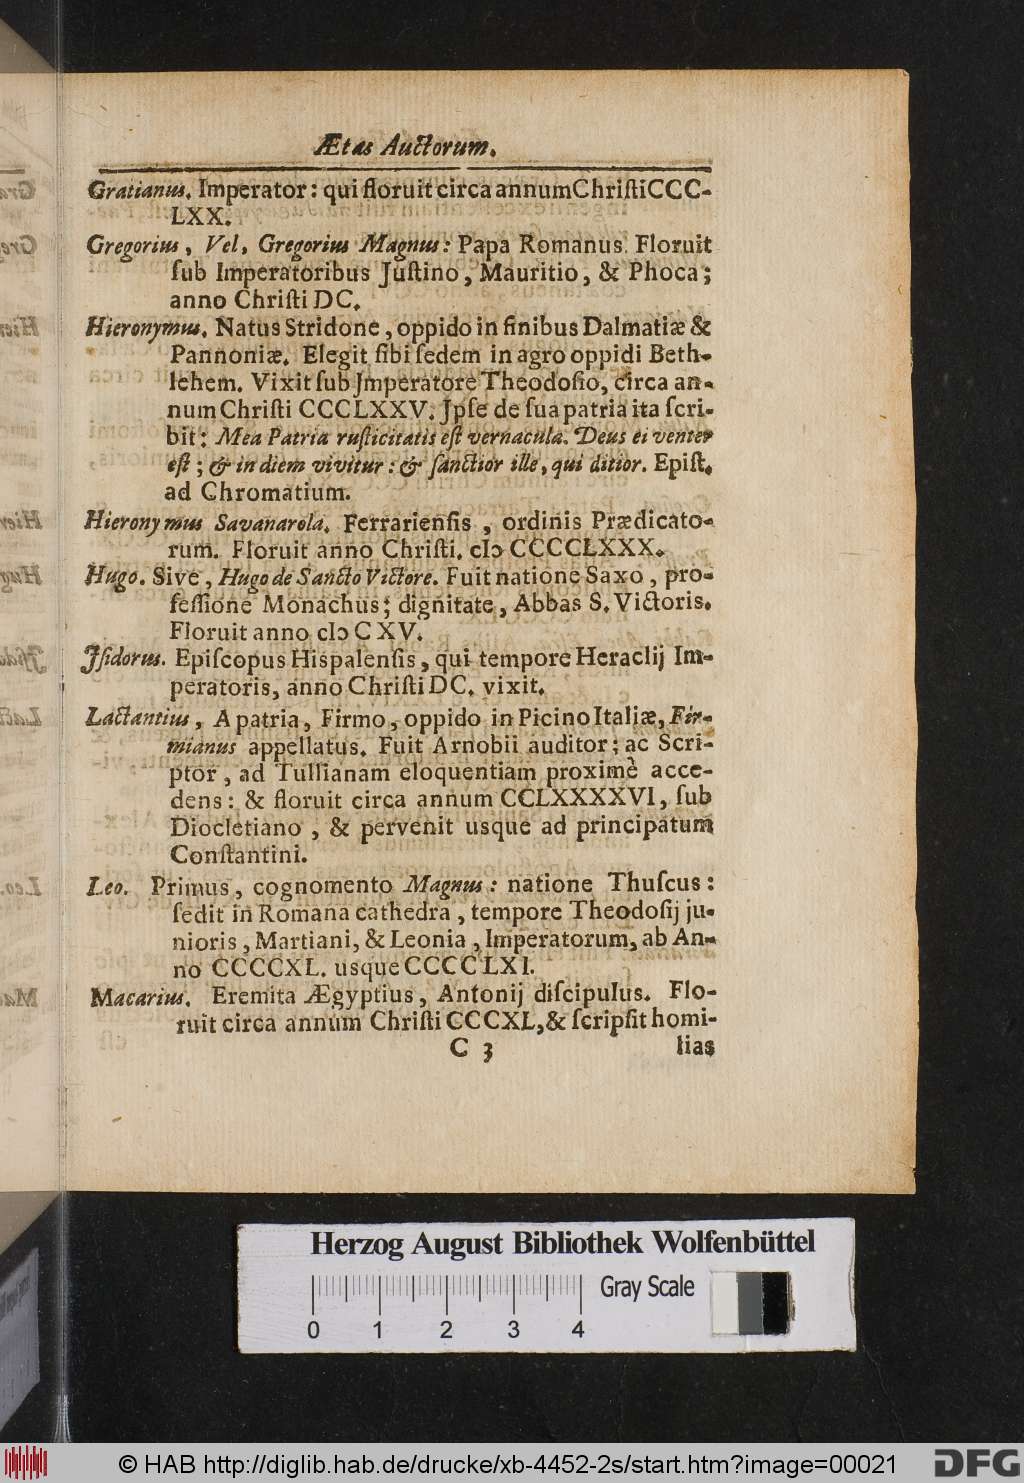 Ætas Auctorum.
Gratianus. Imperator: qui floruit circa annum Chriſti CCC-
LXX.
Gregorius, Vel, Gregorius Magnus: Papa Romanus. Floruit
ſub Imperatoribus Juſtino, Mauritio, & Phoca;
anno Chriſti DC.
Hieronymus. Natus Stridone, oppido in finibus Dalmatiæ &
Pannoniæ. Elegit ſibi ſedem in agro oppidi Beth-
lehem. Vixit ſub Jmperatore Theodoſio, circa an-
num Chriſti CCCLXXV. Jpſe de ſua patria ita ſcri-
bit: Mea Patria ruſticitatis eſt vernacula. Deus ei venter
eſt; & in diem vivitur: & ſanctior ille, qui ditior. Epiſt.
ad Chromatium.
Hieronymus Savanarola. Ferrarienſis, ordinis Prædicato-
rum. Floruit anno Chriſti. cIↄ CCCCLXXX.
Hugo. Sive, Hugo de Sancto Victore. Fuit natione Saxo, pro-
feſſione Monachus; dignitate, Abbas S. Victoris.
Floruit anno cIↄ C XV.
Jſidorus. Epiſcopus Hispalenſis, qui tempore Heraclij Im-
peratoris, anno Chriſti DC. vixit.
Lactantius, A patria, Firmo, oppido in Picino Italiæ, Fir-
mianus appellatus. Fuit Arnobii auditor; ac Scri-
ptor, ad Tullianam eloquentiam proximè acce-
dens: & floruit circa annum CCLXXXXVI, ſub
Diocletiano, & pervenit usque ad principatum
Conſtantini.
Leo. Primus, cognomento Magnus: natione Thuſcus:
ſedit in Romana cathedra, tempore Theodoſij ju-
nioris, Martiani, & Leonia, Imperatorum, ab An-
no CCCCXL. usque CCCCLXI.
Macarius. Eremita Ægyptius, Antonij diſcipulus. Flo-
ruit circa annum Chriſti CCCXL, & ſcripſit homi-
C 3 lias
Herzog August Bibliothek Wolfenbüttel
Gray Scale
0 1 2 3 4
© HAB http://diglib.hab.de/drucke/xb-4452-2s/start.htm?image=00021
DFG